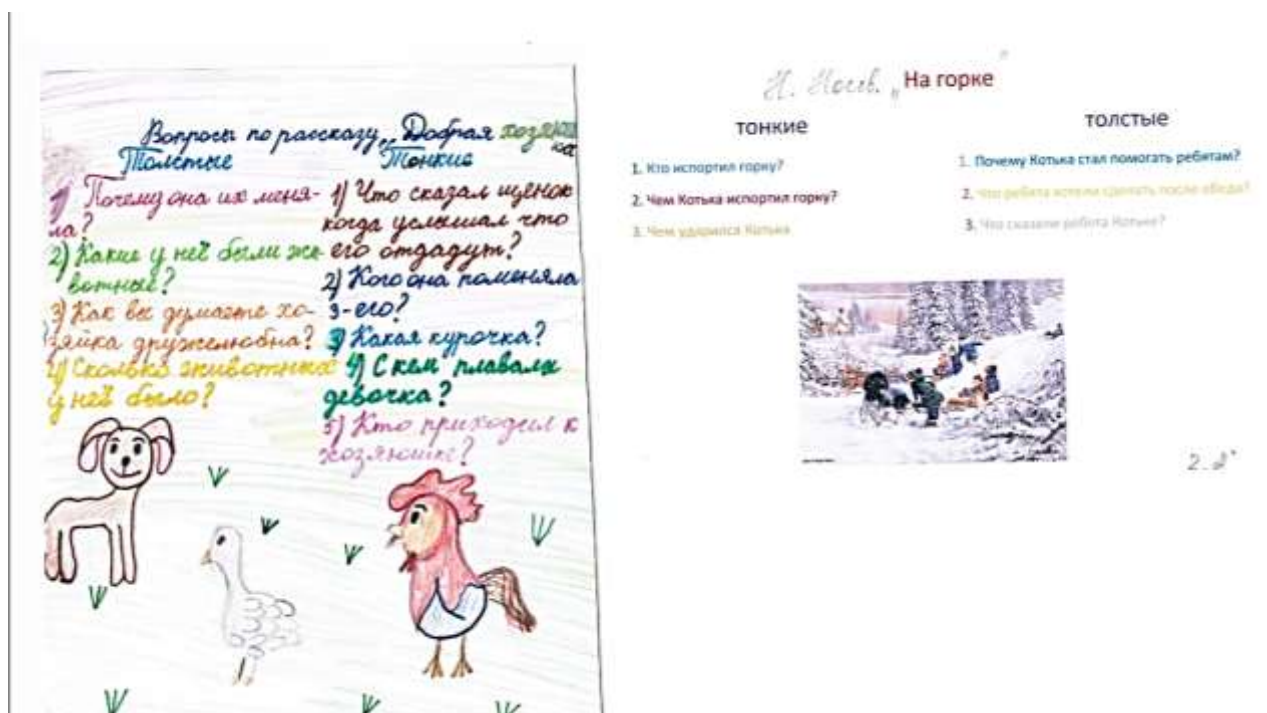 Вопросы по рассказу „Добрая хозяюшка
Толстые
1) Почему она их меня-
ла?
2) Какие у неё были жи-
вотные?
3) Как вы думаете хо-
зяйка дружелюбна?
4) Сколько животных
у неё было?
Тонкие
1) Что сказал щенок
когда услышал что
его отдадут?
2) Кого она поменяла
3-его?
3) Какая курочка?
4) С кем плавала
девочка?
5) Кто приходил к
хозяюшке?
Н. Носов. „На горке"
тонкие
1. Кто испортил горку?
2. Чем Котька испортил горку?
3. Чем ударился Котька
толстые
1. Почему Котька стал помогать ребятам?
2. Что ребята хотели сделать после обеда?
3. Что сказали ребята Котьке?